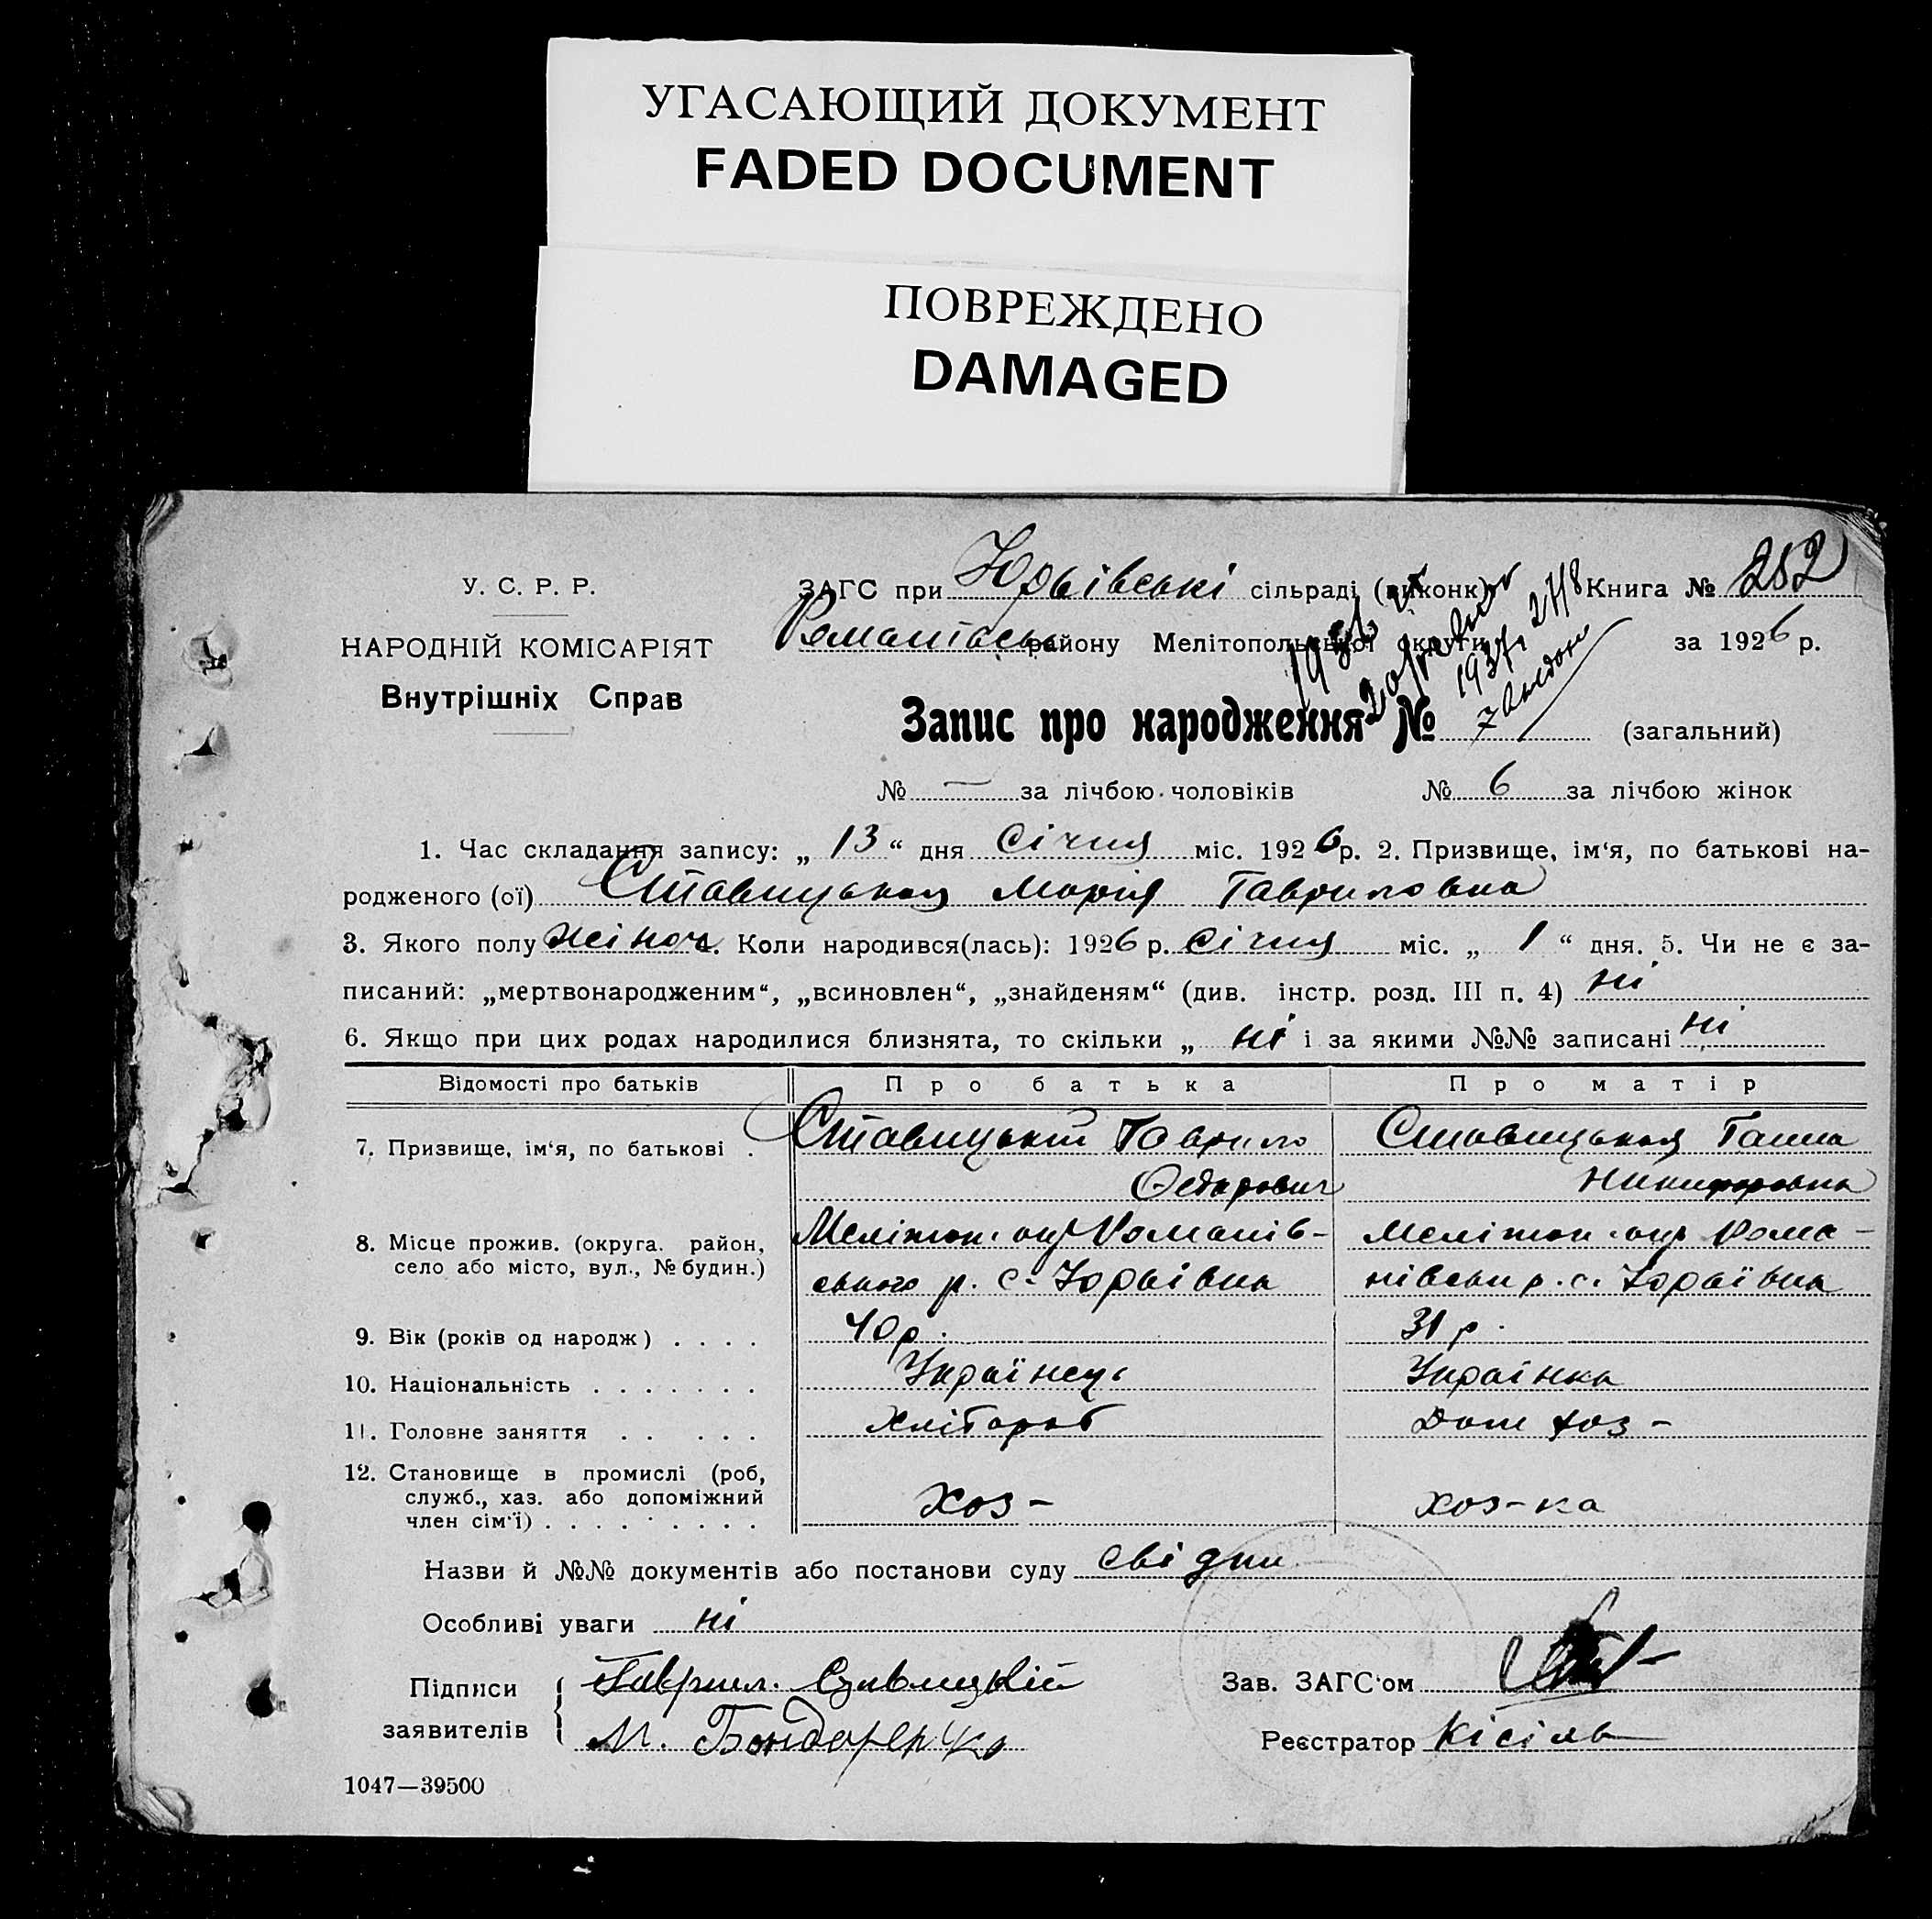 УГАСАЮЩИЙ ДОКУМЕНТ
FADED DOCUMENT
ПОВРЕЖДЕНО
DAMAGED
У. С. Р. Р.
НАРОДНІЙ КОМІСАРІЯТ
Внутрішніх Справ
ЗАГС при Юрьівські сільраді (виконк) Книга № 252
району Мелітопольської округи за 1926 р.
1937. 27/8
Запис про народження № 7 (загальний)
№ — за лічбою чоловіків № 6 за лічбою жінок
1. Час складання запису: „ 13 “ дня Січня міс. 1926 р. 2. Призвище, ім‘я, по батькові на-
родженого (ої) Ставицькая Марія Гавриловна
3. Якого полу жіноч 4. Коли народився(лась): 1926 р. Січня міс. „ 1 “ дня. 5. Чи не є за-
писаний: „мертвонародженим“, „всиновлен“, „знайденям“ (див. інстр. розд. III п. 4) ні
6. Якщо при цих родах народилися близнята, то скільки „ ні і за якими №№ записані ні
Відомості про батьків Про батька Про матір
7. Призвище, ім‘я, по батькові . Ставицький Гаврило Ставицькая Ганна
Федорович Никифоровна
8. Місце прожив. (округа. район, Мелітоп. окр Романів- Мелітоп. окр Рома-
село або місто, вул., № будин.) ського р. с. Юрьівка нівськ р. с. Юрьївка
9. Вік (років од народж) . . . . 40 р. 31 р.
10. Національність . . . . . . . Українець Українка
11. Головне заняття . . . . . Хлібороб Дом хоз-
12. Становище в промислі (роб,
служб., хаз. або допоміжний Хоз- хоз-ка
член сім‘ї) . . . . . . . . .
Назви й №№ документів або постанови суду свідки
Особливі уваги ні
Підписи Гаврил. Ставицкій Зав. ЗАГС‘ом
заявителів М. Бондаренко Реєстратор Кісіль
1047—39500